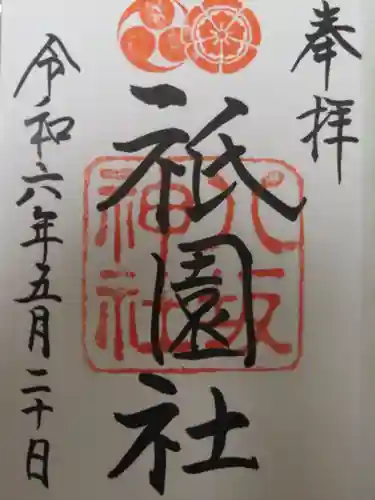 奉拝
八坂
神社
祇園社
令和六年五月二十日